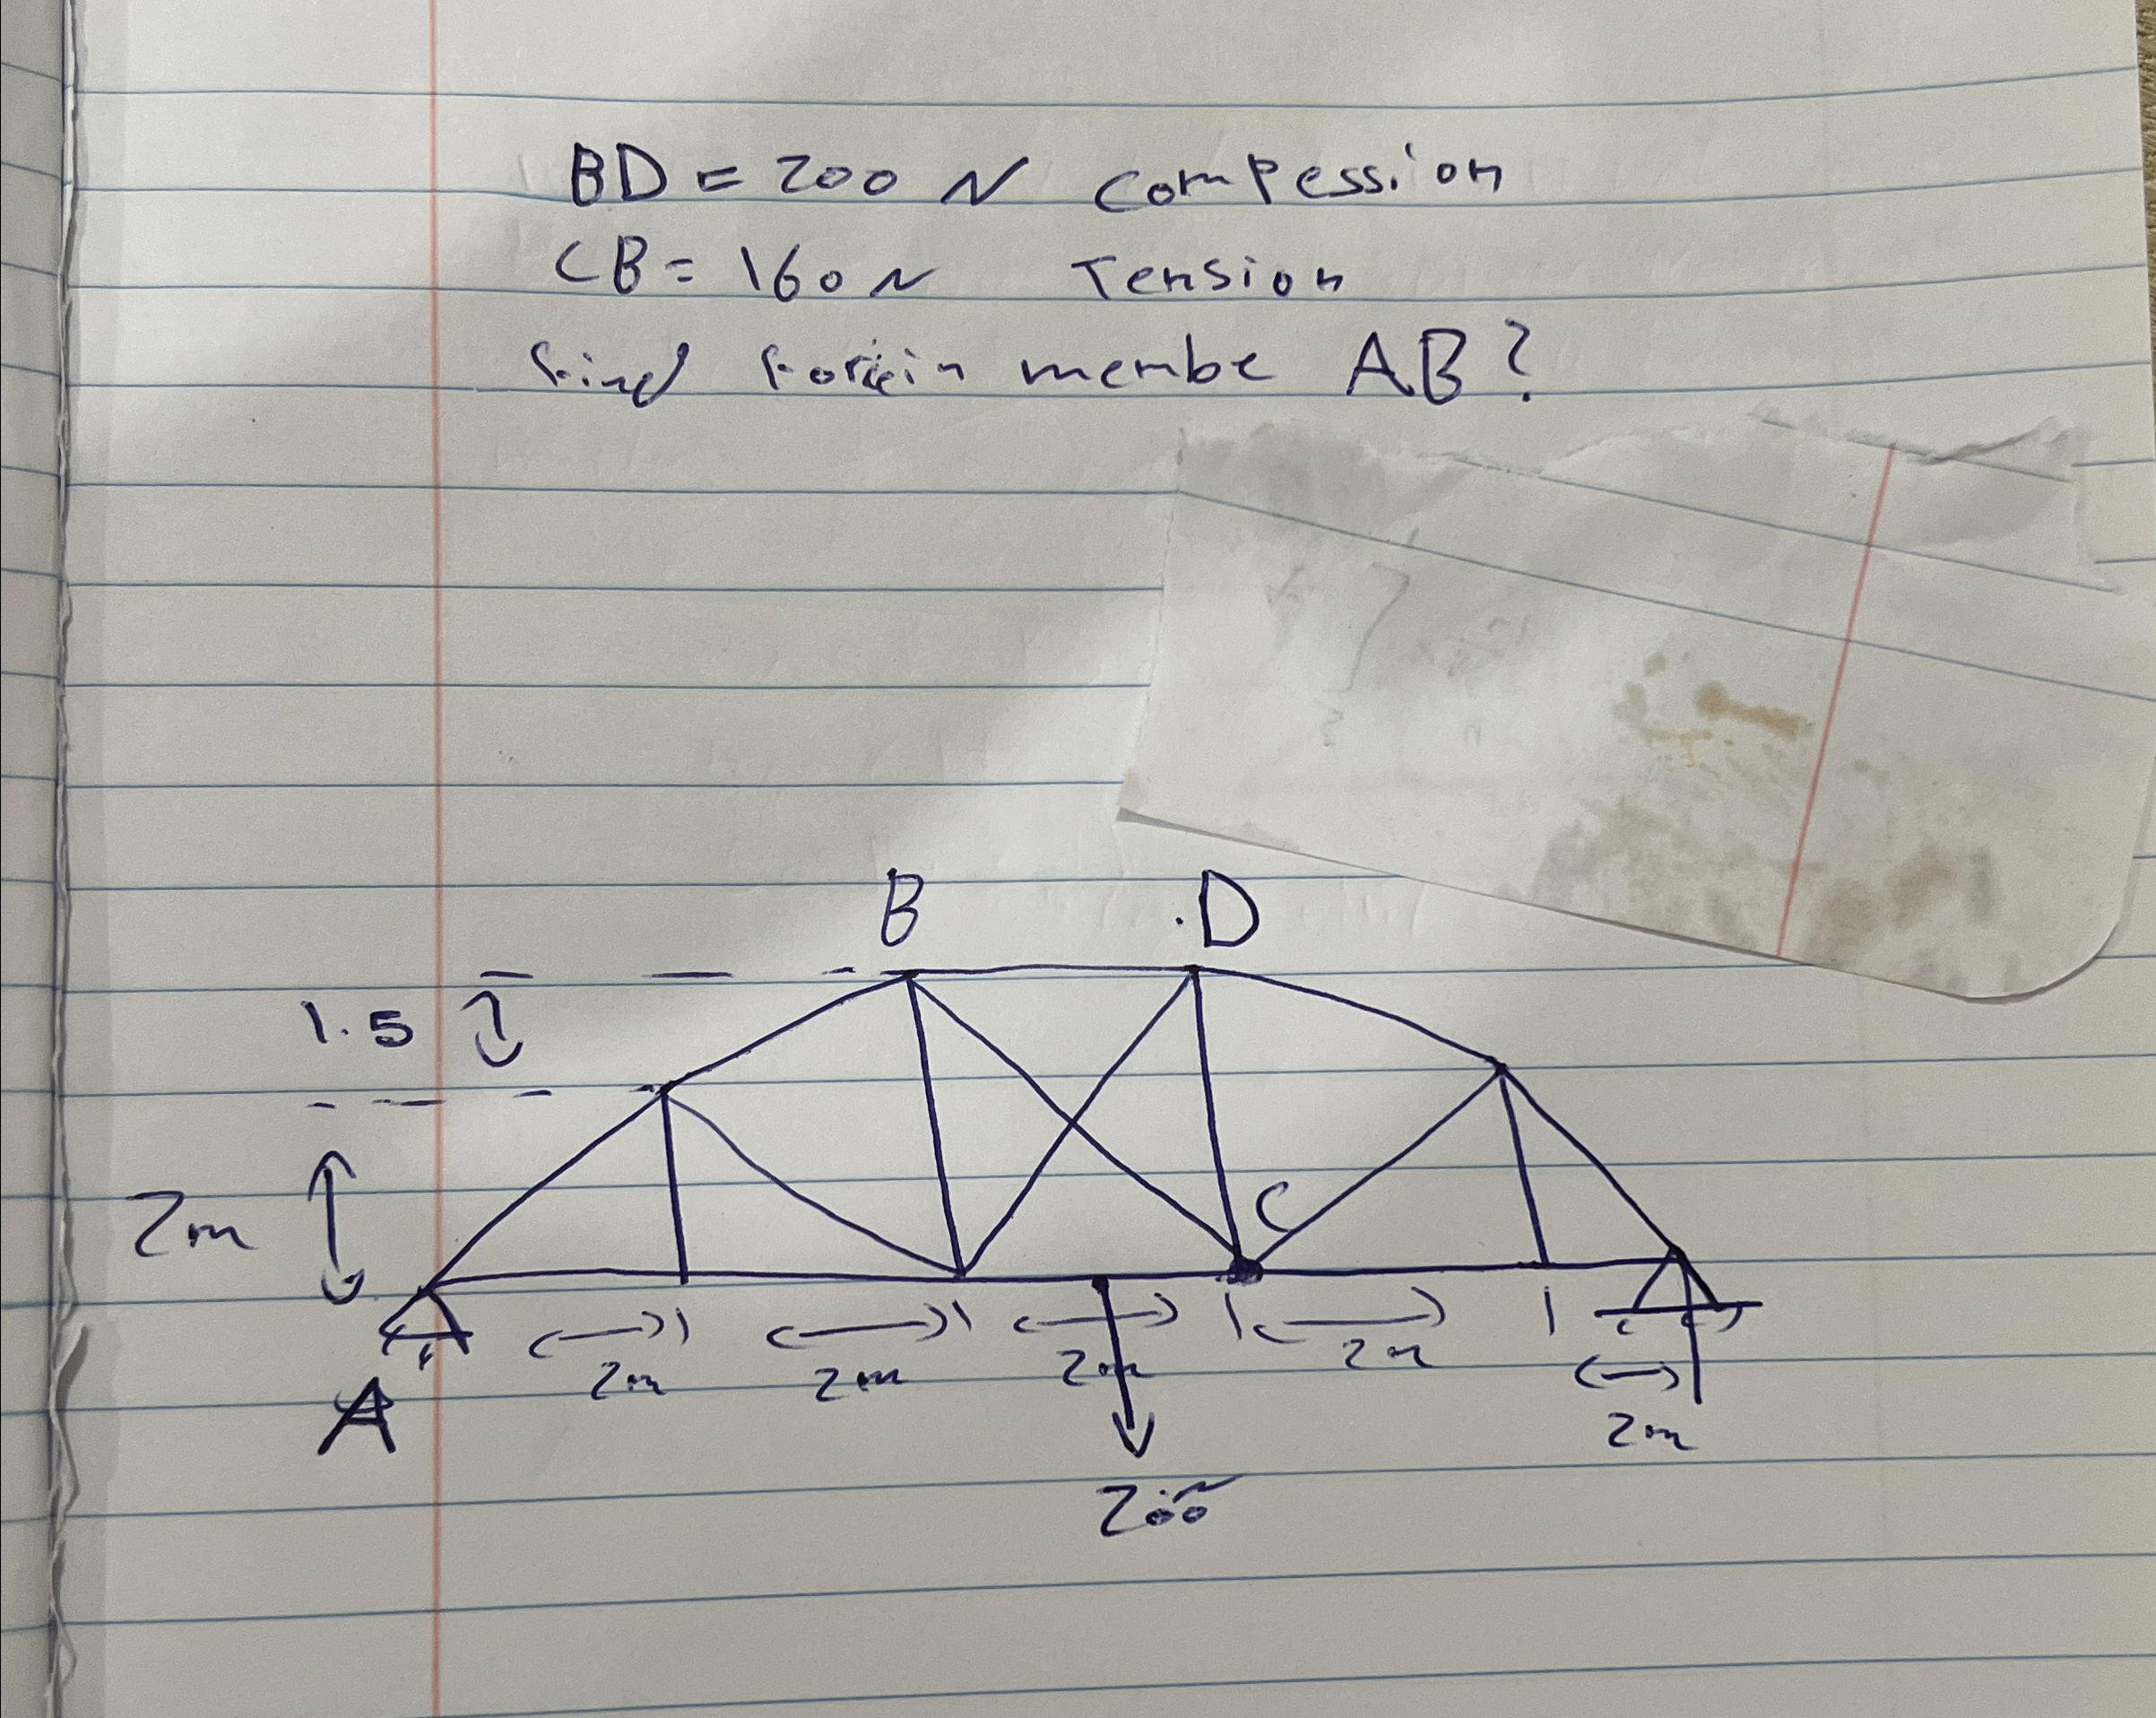 BD = 200 N compession
CB = 160 N Tension
find membe AB?
B
.D
1.5
2m
C
A
2m
2m
2m
2m
2m
200 N